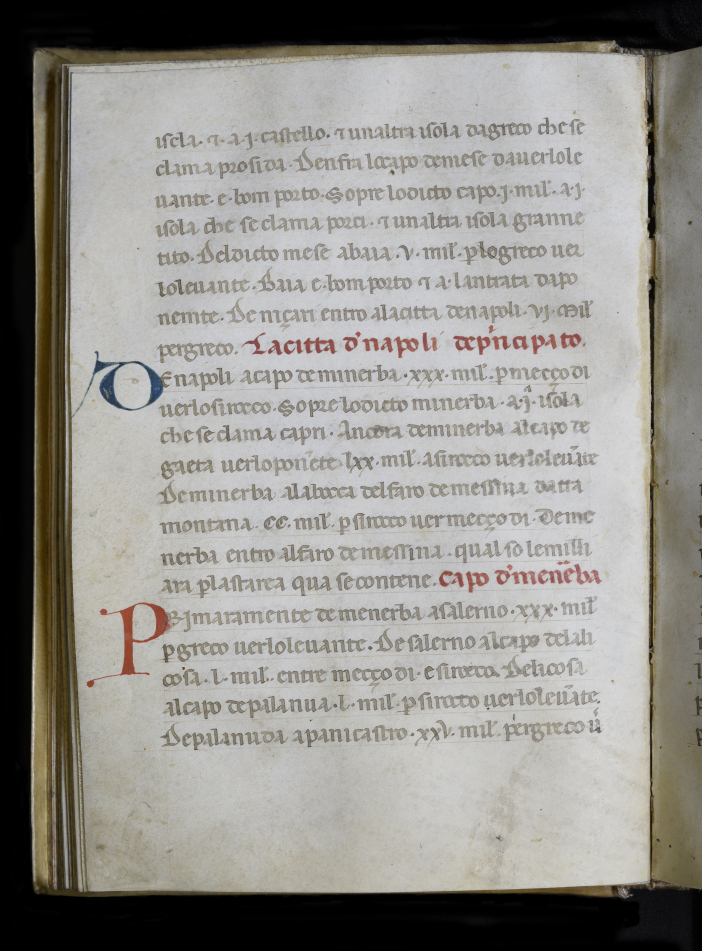 iscla · ⁊ · a · j · castello · ⁊ unaltra isola dagreco che se
clama prosida · Denfra lo capo demese daverlole
uante · e · bom porto · Sopre lo dicto capo · j · mil̃ · a · j ·
isola che se clama porci · ⁊ unaltra isola granne
tito · Deldicto mese abaia · v · mil̃ · ꝑlogreco uer
loleuante · Baia e · bom porto ⁊ a · lantrata dapo
nemte · De niçari entro alacitta denapoli · vj · Mil̃
pergreco · La citta d'napoli dep'ncipato ·
DEnapoli acapo de minerba · xxx · mil̃ · ꝑ meççodi
uerlosirocco · Sopre lodicto minerba · a · j̃ · isola
che se clama capri · Ancora deminerba alcapo de
gaeta uerloponẽte lxx · mil̃ · asirocco uerloleuãte
De minerba alabocca delfaro demessina datra
montana · CC · mil̃ · ꝑ sirocco uer meçço di · Deme
nerba entro alfaro demessina · qual so le milli
ara ꝑlastarea qua secontene · Capo d'menẽba
PRimaramente de menerba asalerno · xxx · mil̃
ꝑgreco uerloleuante · De salerno alcapo delali
cosa · l · mil̃ · entre meçço di · e sirocco · Delicosa
alcapo depalanua · l · mil̃ · ꝑ sirocco uerloleuãte ·
De palanuda apanicastro · xxv · mil̃ · pergreco ũ